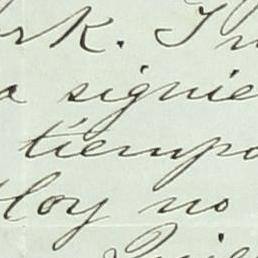 rk. I
a siguie
tiempo
Hoy no